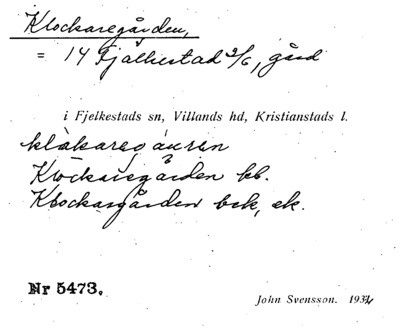 Klockaregården,
= 14 Fjälkestad 2/6, gård
i Fjelkestads sn, Villands hd, Kristianstads l.
Klockaregården kb.
Klockargården bek, ek.
Nr 5473.
John Svensson. 1934